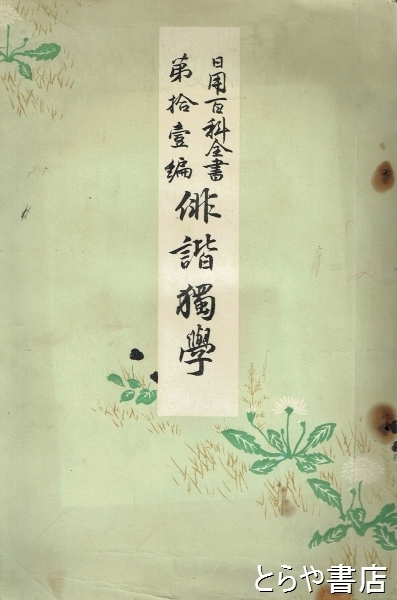 日用百科全書
第拾壹編
俳諧獨學
とらや書店